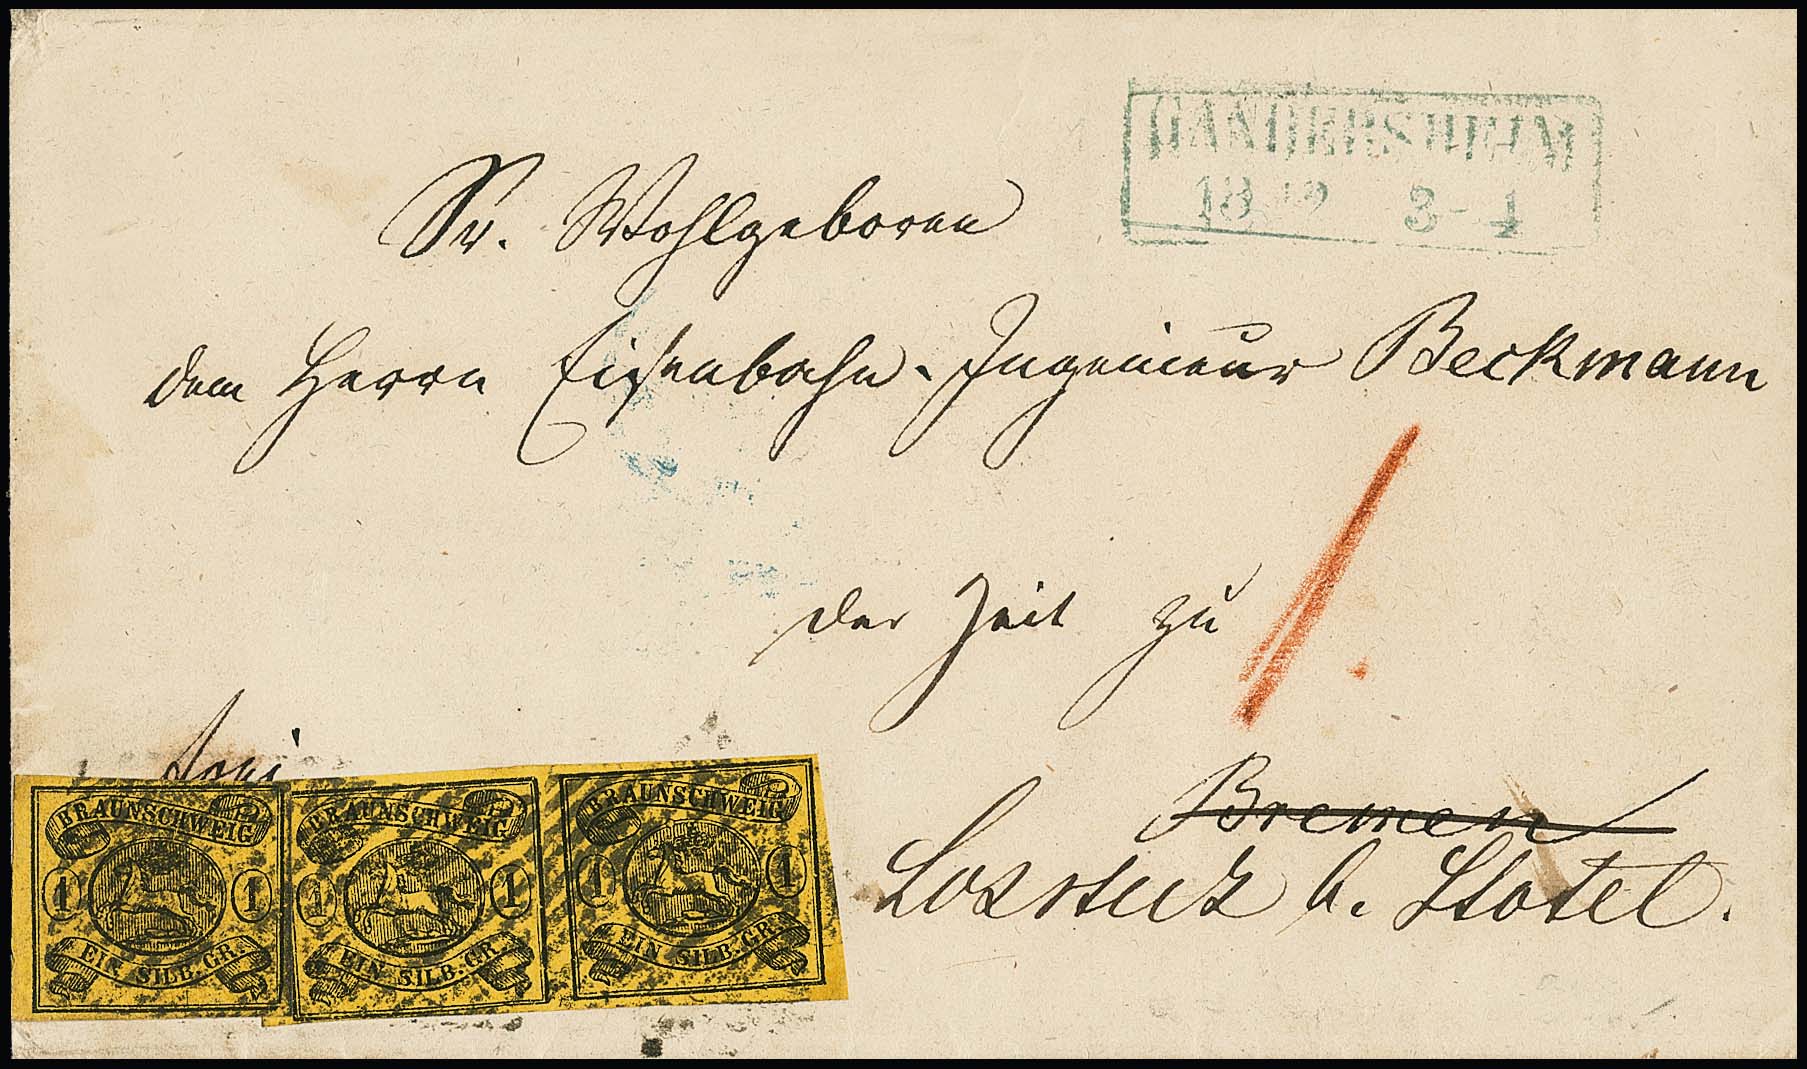 GANDERSHEIM
18 12 3-4
Sr. Wohlgeboren
dem Herrn Eisenbahn-Ingenieur Beckmann
der Zeit zu
Bremen
b. Stotel.
BRAUNSCHWEIG
1 1
EIN SILB.GR.
BRAUNSCHWEIG
1 1
EIN SILB.GR.
BRAUNSCHWEIG
1 1
EIN SILB.GR.